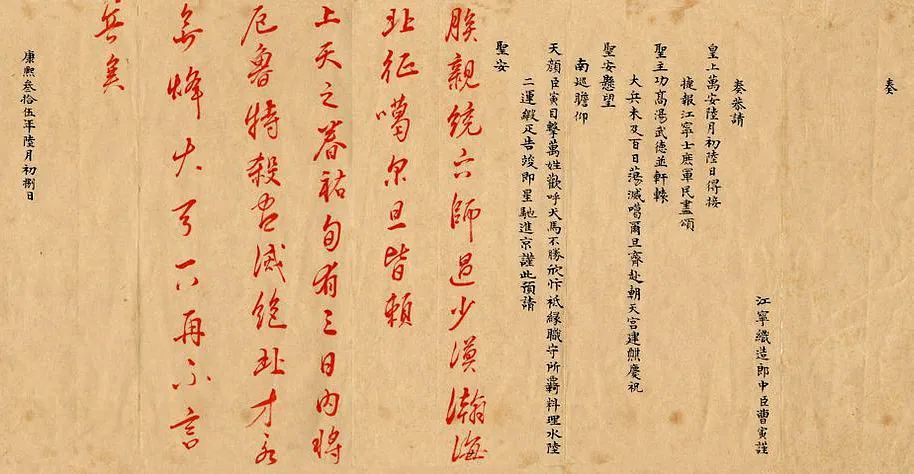 奏
江寧織造郎中臣曹寅謹
奏恭請
皇上萬安陸月初陸日得接
捷報江寧士庶軍民盡頌
聖主功高湯武德並軒轅
大兵未及百日蕩滅噶爾旦齊赴朝天宮建醮慶祝
聖安懸望
南巡瞻仰
天顏臣寅目擊萬姓歡呼犬馬不勝欣忭祗緣職守所羈料理水陸
二運緞疋告竣即星馳進京謹此預請
聖安
朕親統六師過少漠瀚海
北征噶尔旦皆賴
上天之眷祐旬有三日內將
厄魯特殺盡滅絕北方永
無烽火天下再不言
兵矣
康熙叁拾伍年陸月初捌日